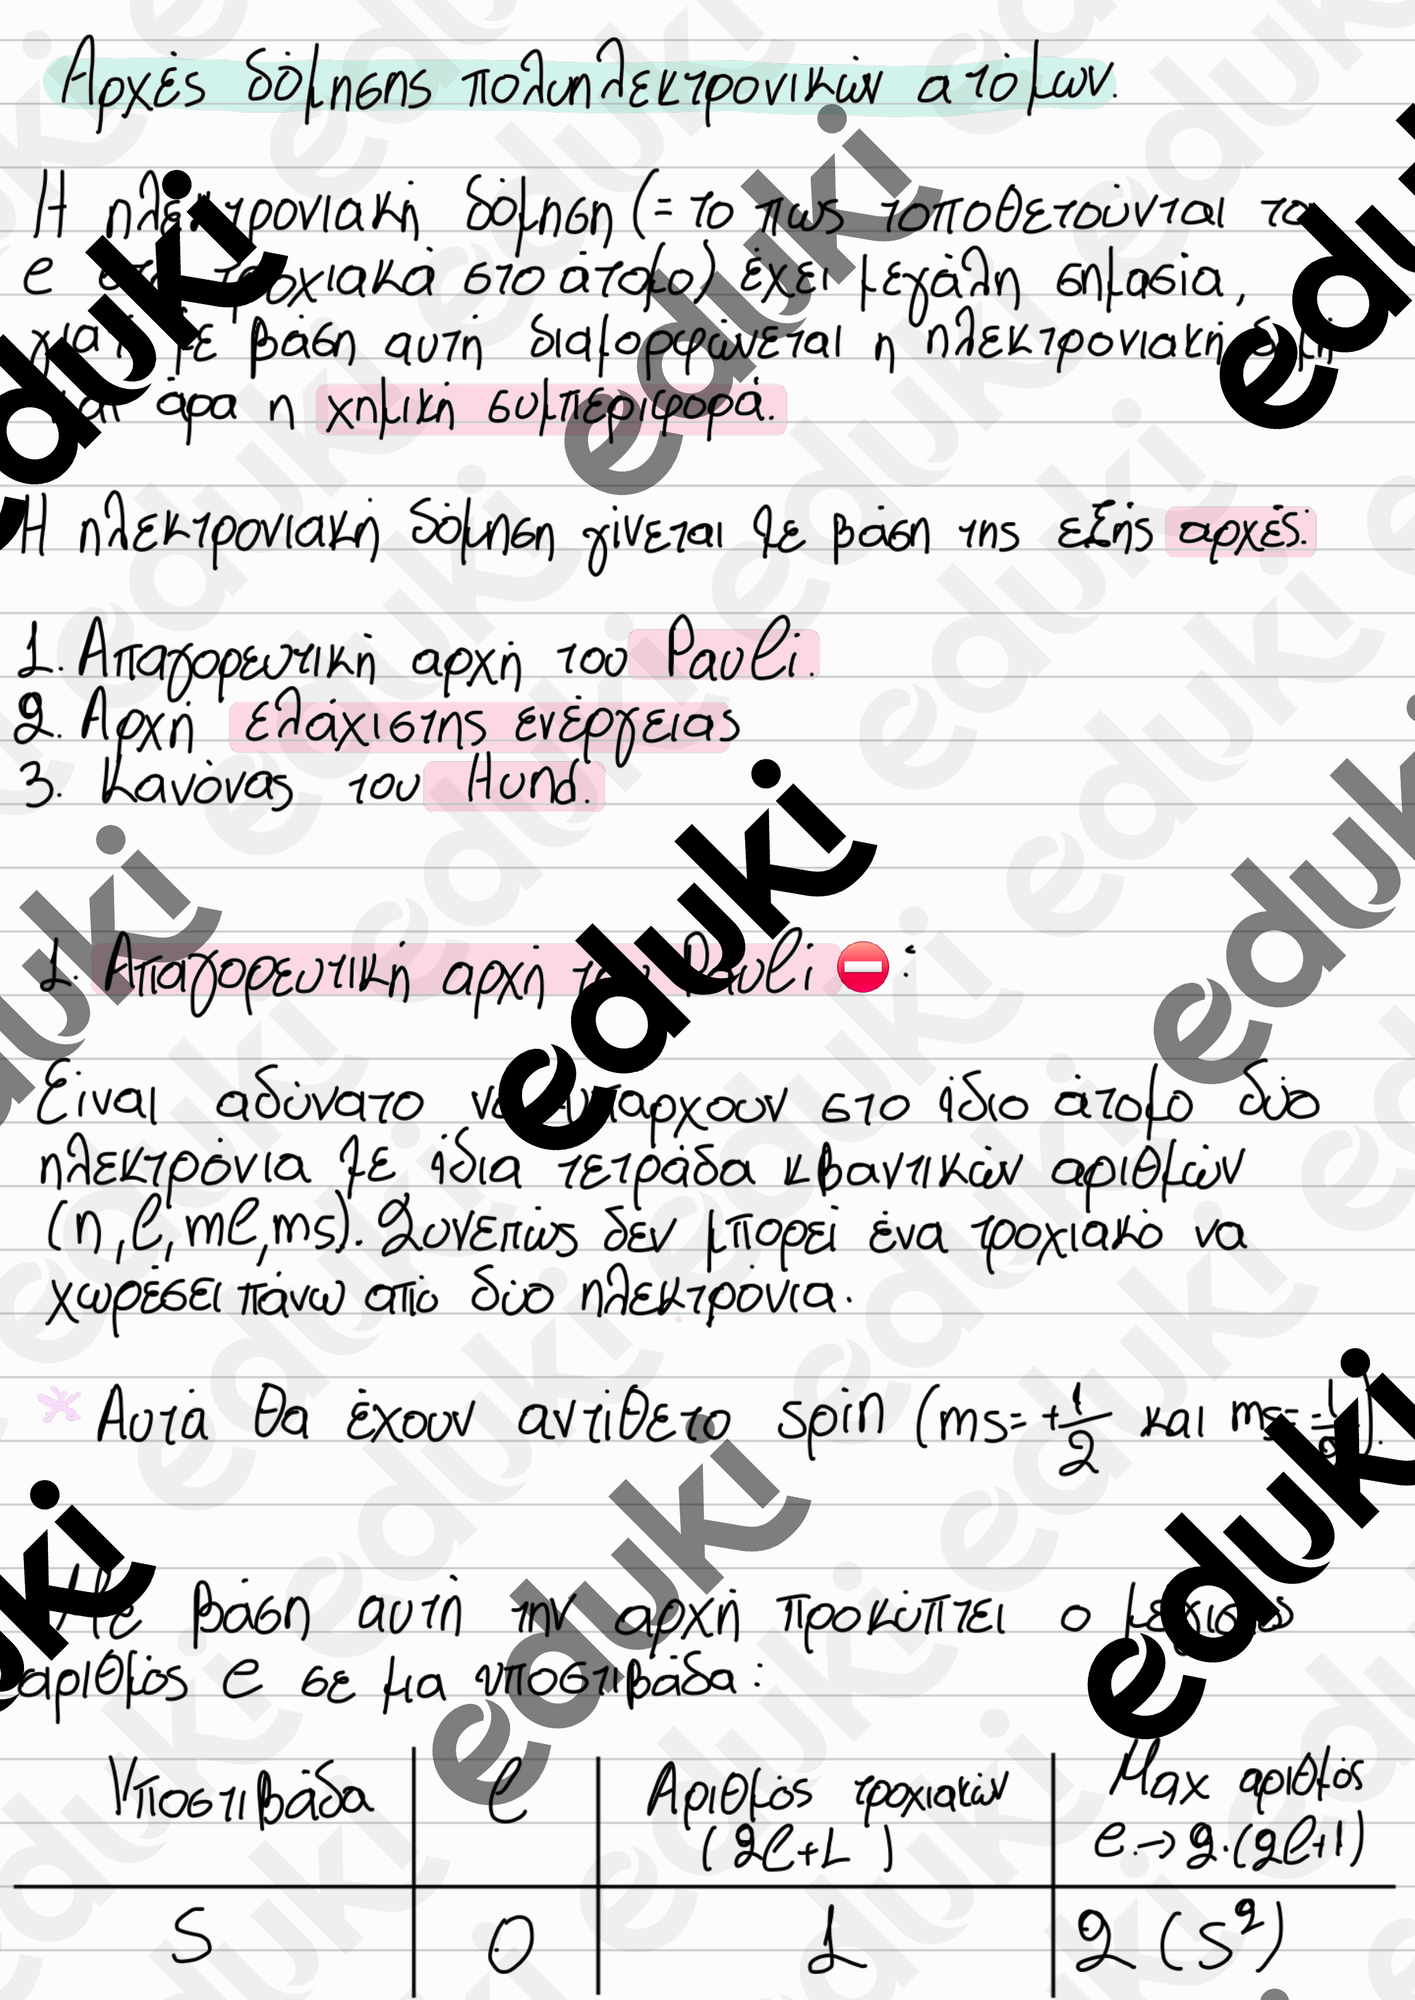 Αρχές δόμησης πολυηλεκτρονικών ατόμων.
Η ηλεκτρονιακή δόμηση (= το πως τοποθετούνται τα
e στα τροχιακά στο άτομο) έχει μεγάλη σημασία,
γιατί με βάση αυτή διαμορφώνεται η ηλεκτρονιακή δομή
και άρα η χημική συμπεριφορά.
Η ηλεκτρονιακή δόμηση γίνεται με βάση της εξής αρχές:
1. Απαγορευτική αρχή του Pauli.
2. Αρχή ελάχιστης ενέργειας
3. Κανόνας του Hund.
1. Απαγορευτική αρχή του Pauli :
Είναι αδύνατο να υπαρχουν στο ίδιο άτομο δύο
ηλεκτρόνια με ίδια τετράδα κβαντικών αριθμών
(n, l, ml, ms). Συνεπώς δεν μπορεί ένα τροχιακό να
χωρέσει πάνω από δύο ηλεκτρόνια.
* Αυτά θα έχουν αντίθετο spin (ms= +1/2 και ms= -1/2).
Με βάση αυτή την αρχή προκύπτει ο μέγιστος
αριθμός e σε μια υποστιβάδα:
Υποστιβάδα l Αριθμός τροχιακών (2l+1) Max αριθμός e → 2·(2l+1)
s 0 1 2 (s²)
eduki
eduki
eduki
eduki
eduki
eduki
eduki
eduki
eduki
eduki